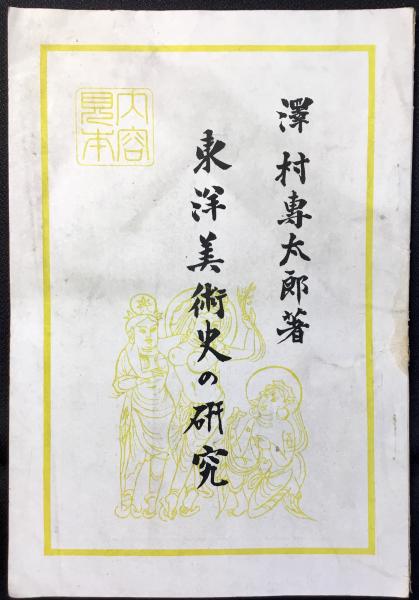 澤村專太郎著
東洋美術史の研究
内容
見本